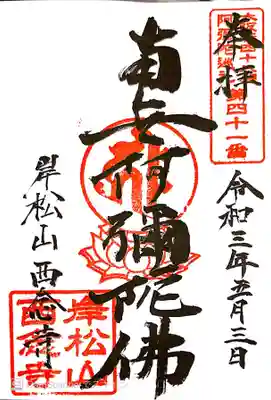 奉拝
第四十一番
令和三年五月三日
南無阿彌陀佛
岸松山 西念寺
岸松山
西念寺